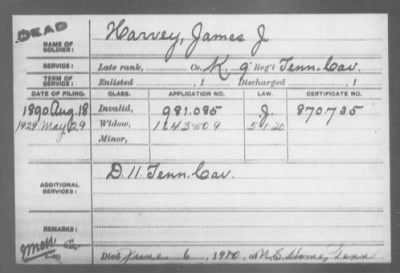 DEAD
NAME OF SOLDIER: Harvey, James J
SERVICE: Late rank, Co. K, 9 Reg't Tenn. Cav.
TERM OF SERVICE: Enlisted , 1 Discharged , 1
DATE OF FILING. CLASS. APPLICATION NO. LAW. CERTIFICATE NO.
1890 Aug. 18 Invalid, 981.085 J. 870.735
1920 May 29 Widow, 5.1.20
Minor,
ADDITIONAL SERVICES: D. 11. Tenn. Cav.
REMARKS:
Died June 6, at N.S. Home, Tenn